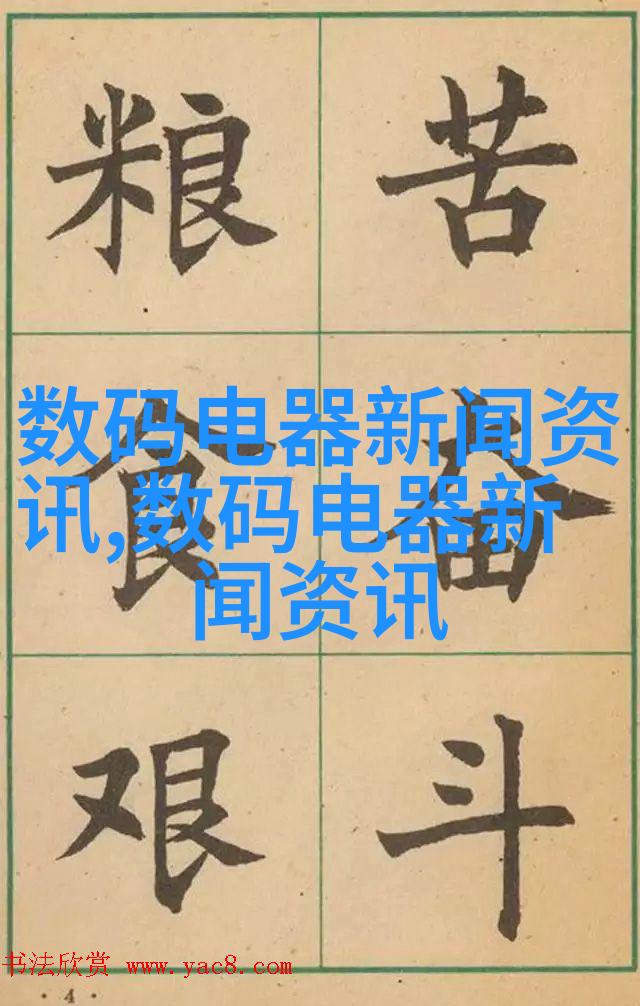 粮 苦
食 奋
艰 斗
数码电器新闻资
讯,数码电器新
闻资讯
书法欣赏 www.yac8.com
·4·